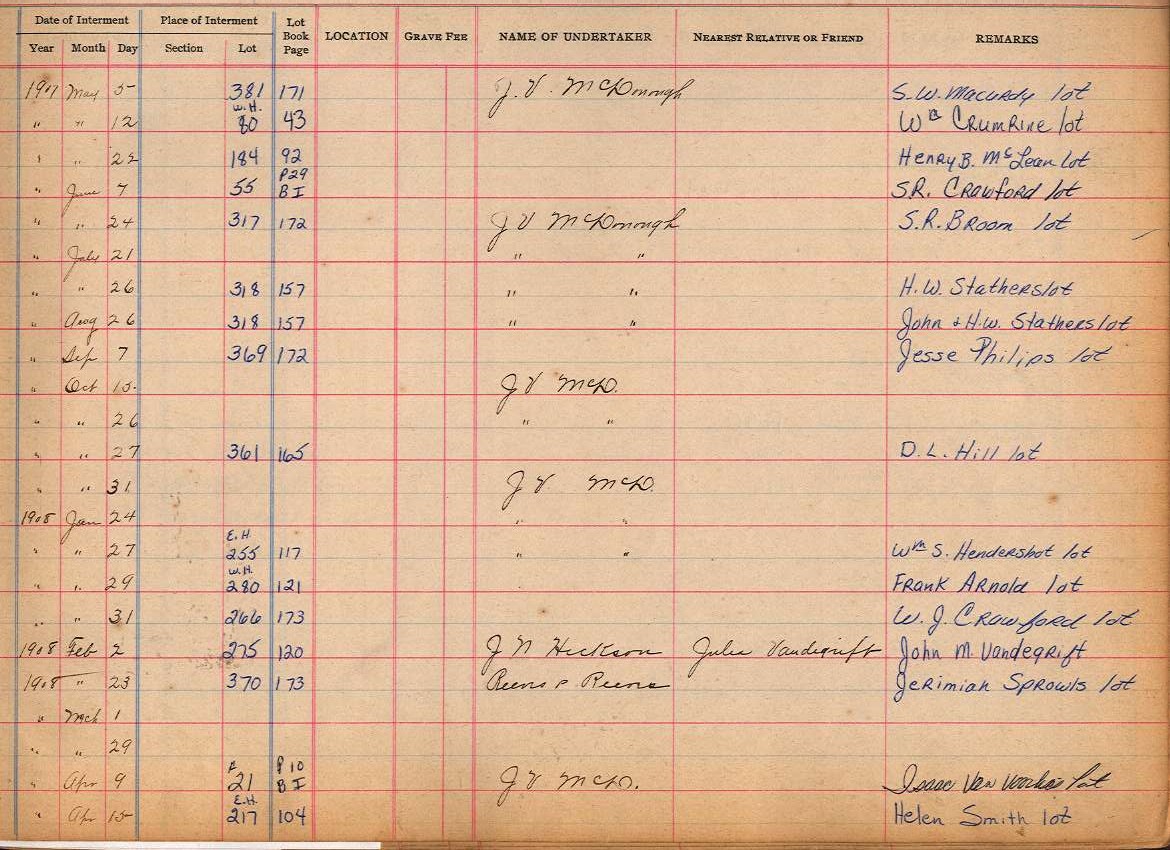 Date of Interment Place of Interment Lot Book Page LOCATION GRAVE FEE NAME OF UNDERTAKER NEAREST RELATIVE OR FRIEND REMARKS
Year Month Day Section Lot
1907 May 5 381 171 J. V. McDonough S. W. Macurdy lot
" " 12 W.H. 80 43 Wm Crumrine lot
" " 22 184 92 Henry B. McLean lot
" June 7 55 P29 B I S.R. Crawford lot
" " 24 317 172 J V McDonough S.R. Broom lot
" July 21 " "
" " 26 318 157 " " H.W. Stathers lot
" Aug 26 318 157 " " John & H.W. Stathers lot
" Sep 7 369 172 Jesse Philips lot
" Oct 15 J V McD.
" " 26 " "
" " 27 361 165 D. L. Hill lot
" " 31 J V McD.
1908 Jan 24 " "
" " 27 E.H. 255 117 " " Wm S. Hendershot lot
" " 29 W.H. 280 121 Frank Arnold lot
" " 31 266 173 W. J. Crawford lot
1908 Feb 2 275 120 J N Heckson Julia Vandigrift John M. Vandegrift
1908 " 23 370 173 Jerimiah Sprowls lot
" Mch 1
" " 29
" Apr 9 21 P 10 B I J V McD. Isaac Van Voorhis lot
" Apr 15 E.H. 217 104 Helen Smith lot